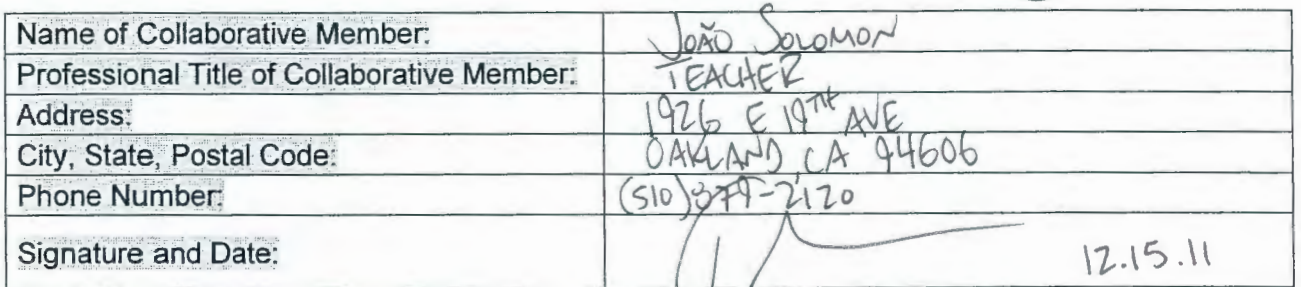 Name of Collaborative Member: JOÃO SOLOMON
Professional Title of Collaborative Member: TEACHER
Address: 1926 E 19TH AVE
City, State, Postal Code: OAKLAND, CA 94606
Phone Number: (510) 379-2120
Signature and Date: 12.15.11